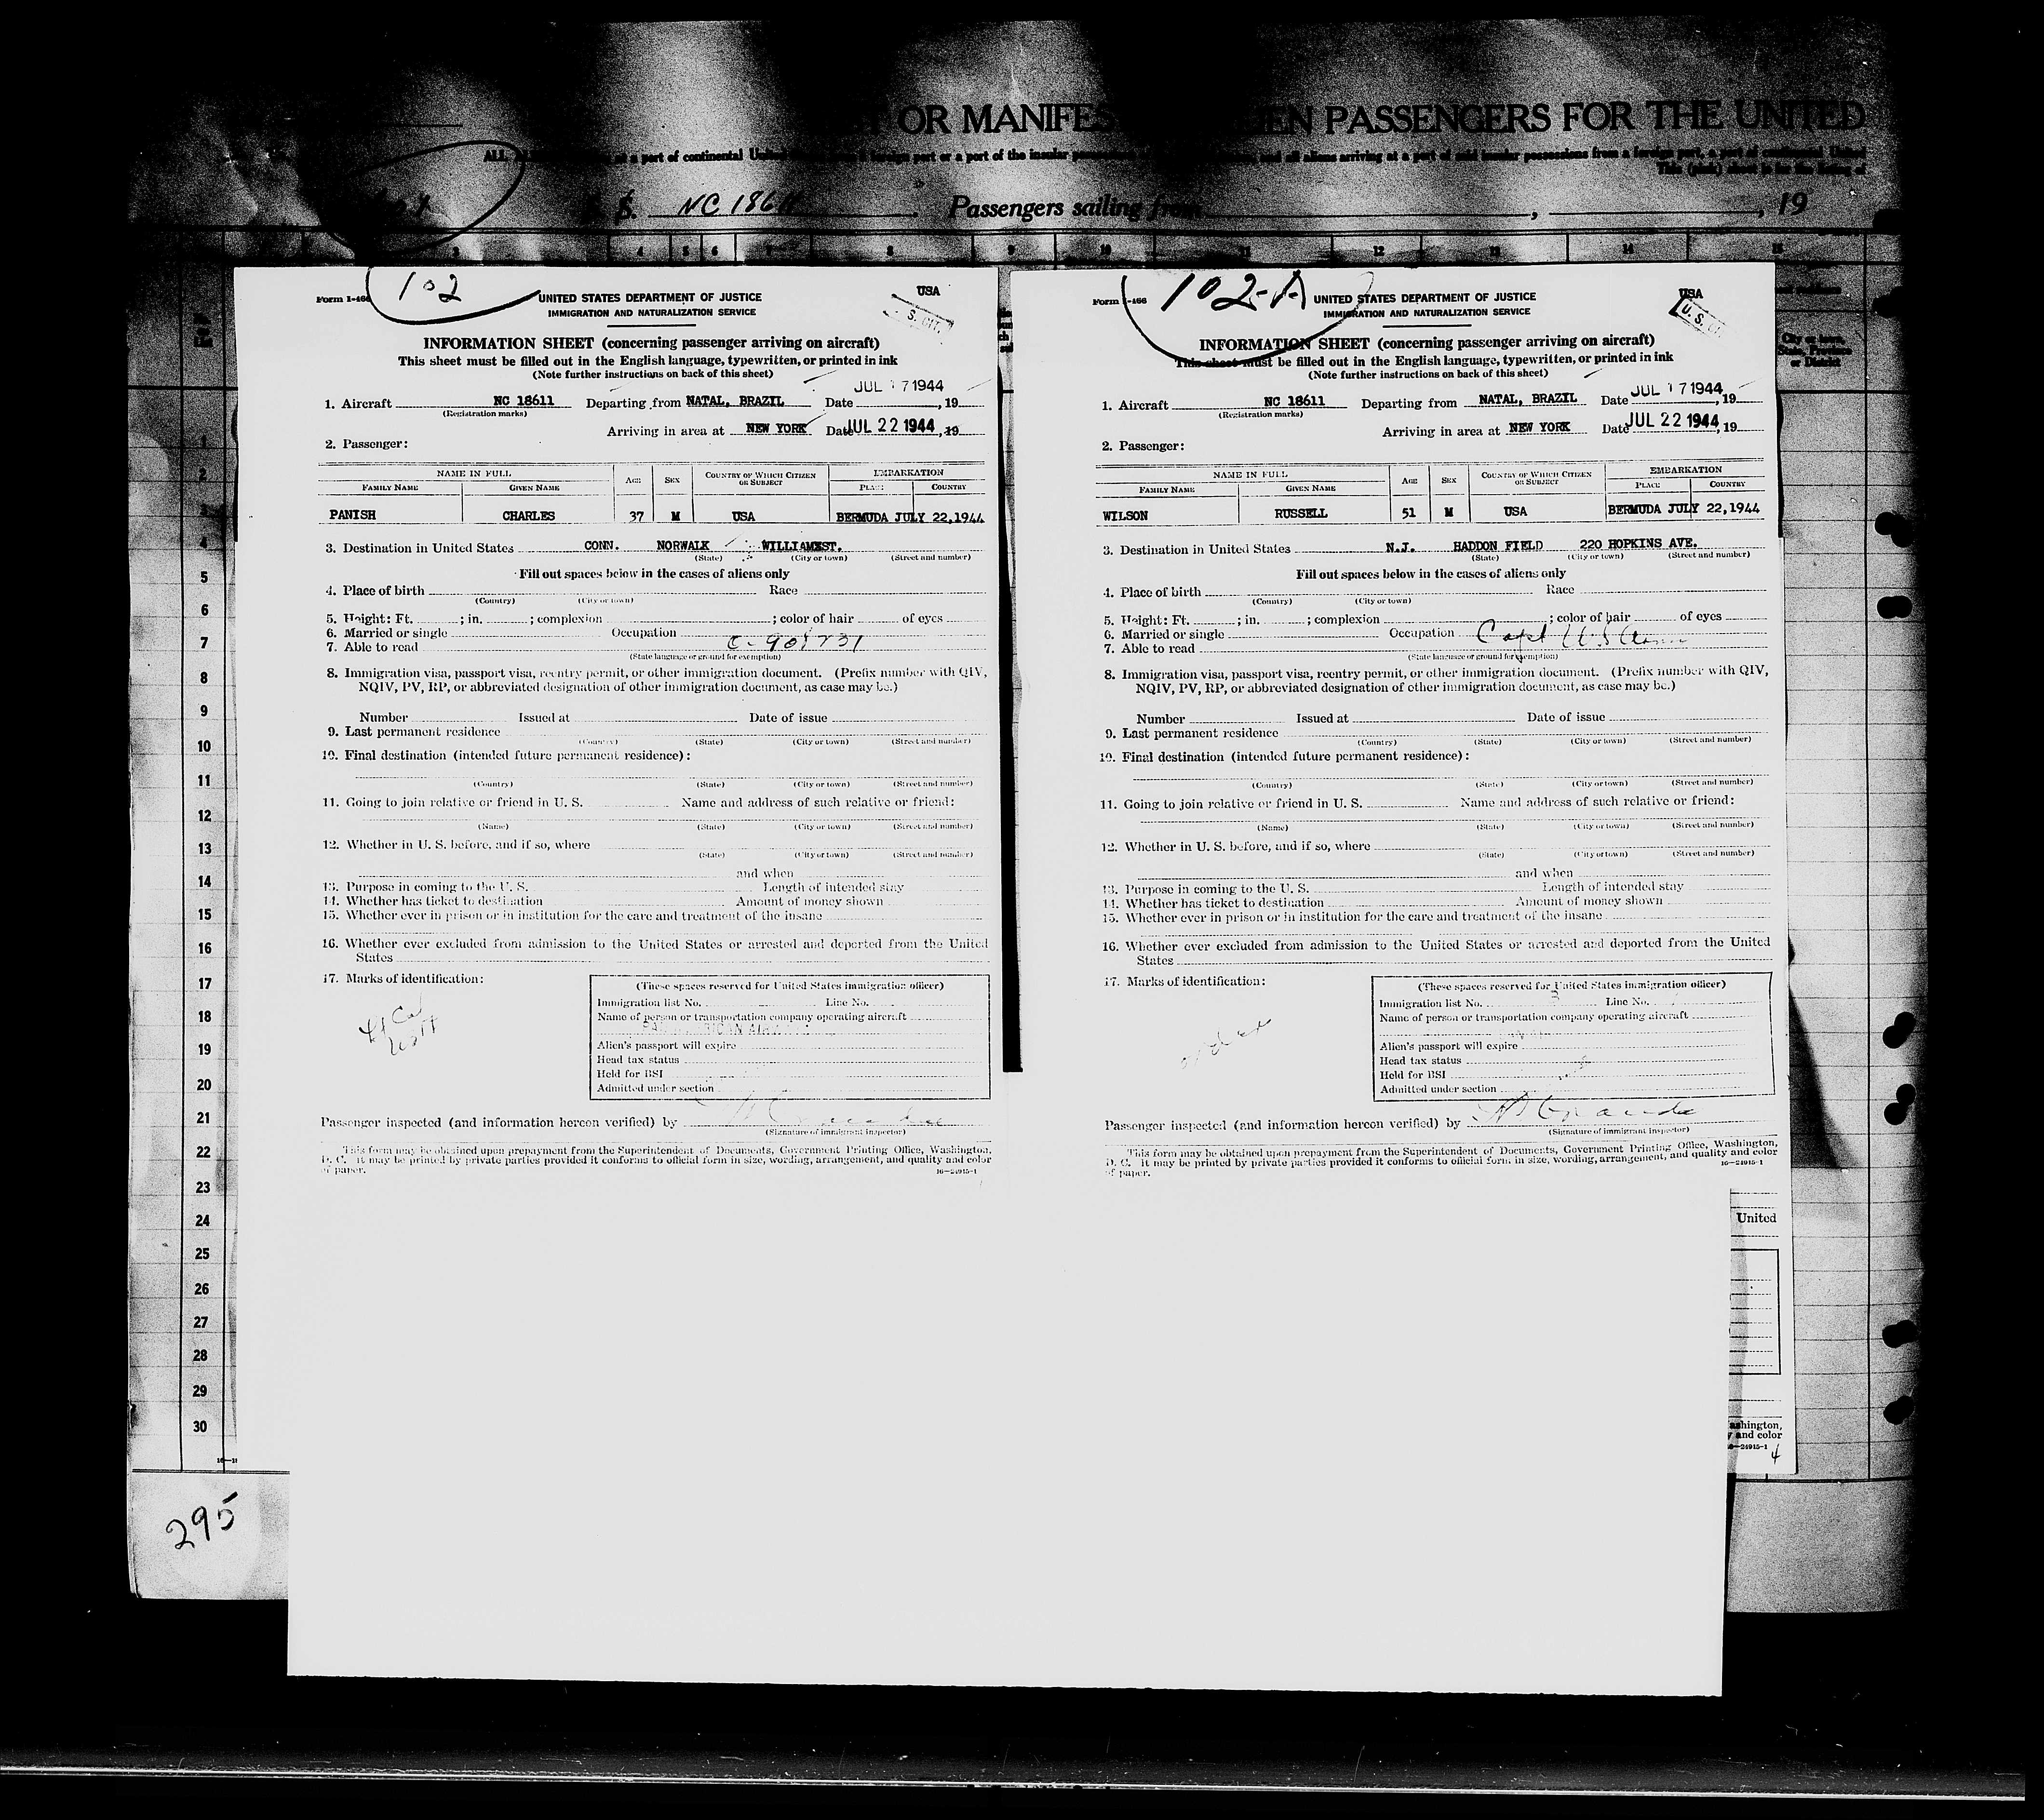 OR MANIFES EN PASSENGERS FOR THE UNITED
ALL at a port of continental United from a foreign port or a port of the insular possessions and all aliens arriving at a port of said insular possessions from a foreign port, a port of continental United
NC 18611 Passengers sailing from , , 19
3 4 5 6 7 8 9 10 11 12 13 14 15
City or town, State, Province or District
1
2
3
4
5
6
7
8
9
10
11
12
13
14
15
16
17
18
19
20
21
22
23
24
25
26
27
28
29
30
295
Form I-466
102
UNITED STATES DEPARTMENT OF JUSTICE
USA
IMMIGRATION AND NATURALIZATION SERVICE
S. CIT.
INFORMATION SHEET (concerning passenger arriving on aircraft)
This sheet must be filled out in the English language, typewritten, or printed in ink
(Note further instructions on back of this sheet)
1. Aircraft NC 18611 Departing from NATAL, BRAZIL Date JUL 17 1944, 19
(Registration marks)
Arriving in area at NEW YORK Date JUL 22 1944, 19
2. Passenger:
NAME IN FULL
FAMILY NAME GIVEN NAME AGE SEX COUNTRY OF WHICH CITIZEN OR SUBJECT EMBARKATION PLACE COUNTRY
PANISH CHARLES 37 M USA BERMUDA JULY 22,1944
3. Destination in United States CONN. NORWALK WILLIAMST.
(State) (City or town) (Street and number)
Fill out spaces below in the cases of aliens only
4. Place of birth Race
(Country) (City or town)
5. Height: Ft. ; in. ; complexion ; color of hair of eyes
6. Married or single Occupation
7. Able to read 0-908731
(State language or ground for exemption)
8. Immigration visa, passport visa, reentry permit, or other immigration document. (Prefix number with QIV,
NQIV, PV, RP, or abbreviated designation of other immigration document, as case may be.)
Number Issued at Date of issue
9. Last permanent residence
(Country) (State) (City or town) (Street and number)
10. Final destination (intended future permanent residence):
(Country) (State) (City or town) (Street and number)
11. Going to join relative or friend in U. S. Name and address of such relative or friend:
(Name) (State) (City or town) (Street and number)
12. Whether in U. S. before, and if so, where
(State) (City or town) (Street and number)
and when
13. Purpose in coming to the U. S. Length of intended stay
14. Whether has ticket to destination Amount of money shown
15. Whether ever in prison or in institution for the care and treatment of the insane
16. Whether ever excluded from admission to the United States or arrested and deported from the United
States
17. Marks of identification:
Lt Col
(These spaces reserved for United States immigration officer)
Immigration list No. Line No.
Name of person or transportation company operating aircraft
PAN AMERICAN AIRWAYS
Alien's passport will expire
Head tax status
Held for BSI
Admitted under section
Passenger inspected (and information hereon verified) by
(Signature of immigrant inspector)
This form may be obtained upon prepayment from the Superintendent of Documents, Government Printing Office, Washington,
D. C. It may be printed by private parties provided it conforms to official form in size, wording, arrangement, and quality and color
of paper.
16—24915-1
Form I-466
102-A
UNITED STATES DEPARTMENT OF JUSTICE
USA
IMMIGRATION AND NATURALIZATION SERVICE
U. S. CI
INFORMATION SHEET (concerning passenger arriving on aircraft)
This sheet must be filled out in the English language, typewritten, or printed in ink
(Note further instructions on back of this sheet)
1. Aircraft NC 18611 Departing from NATAL, BRAZIL Date JUL 17 1944, 19
(Registration marks)
Arriving in area at NEW YORK Date JUL 22 1944, 19
2. Passenger:
NAME IN FULL
FAMILY NAME GIVEN NAME AGE SEX COUNTRY OF WHICH CITIZEN OR SUBJECT EMBARKATION PLACE COUNTRY
WILSON RUSSELL 51 M USA BERMUDA JULY 22,1944
3. Destination in United States N.J. HADDON FIELD 220 HOPKINS AVE.
(State) (City or town) (Street and number)
Fill out spaces below in the cases of aliens only
4. Place of birth Race
(Country) (City or town)
5. Height: Ft. ; in. ; complexion ; color of hair of eyes
6. Married or single Occupation Capt U.S.
7. Able to read
(State language or ground for exemption)
8. Immigration visa, passport visa, reentry permit, or other immigration document. (Prefix number with QIV,
NQIV, PV, RP, or abbreviated designation of other immigration document, as case may be.)
Number Issued at Date of issue
9. Last permanent residence
(Country) (State) (City or town) (Street and number)
10. Final destination (intended future permanent residence):
(Country) (State) (City or town) (Street and number)
11. Going to join relative or friend in U. S. Name and address of such relative or friend:
(Name) (State) (City or town) (Street and number)
12. Whether in U. S. before, and if so, where
(State) (City or town) (Street and number)
and when
13. Purpose in coming to the U. S. Length of intended stay
14. Whether has ticket to destination Amount of money shown
15. Whether ever in prison or in institution for the care and treatment of the insane
16. Whether ever excluded from admission to the United States or arrested and deported from the United
States
17. Marks of identification:
order
(These spaces reserved for United States immigration officer)
Immigration list No. 3 Line No.
Name of person or transportation company operating aircraft
Alien's passport will expire
Head tax status
Held for BSI
Admitted under section
Passenger inspected (and information hereon verified) by
(Signature of immigrant inspector)
This form may be obtained upon prepayment from the Superintendent of Documents, Government Printing Office, Washington,
D. C. It may be printed by private parties provided it conforms to official form in size, wording, arrangement, and quality and color
of paper.
16—24915-1
United
ashington,
y and color
6—24915-1
4